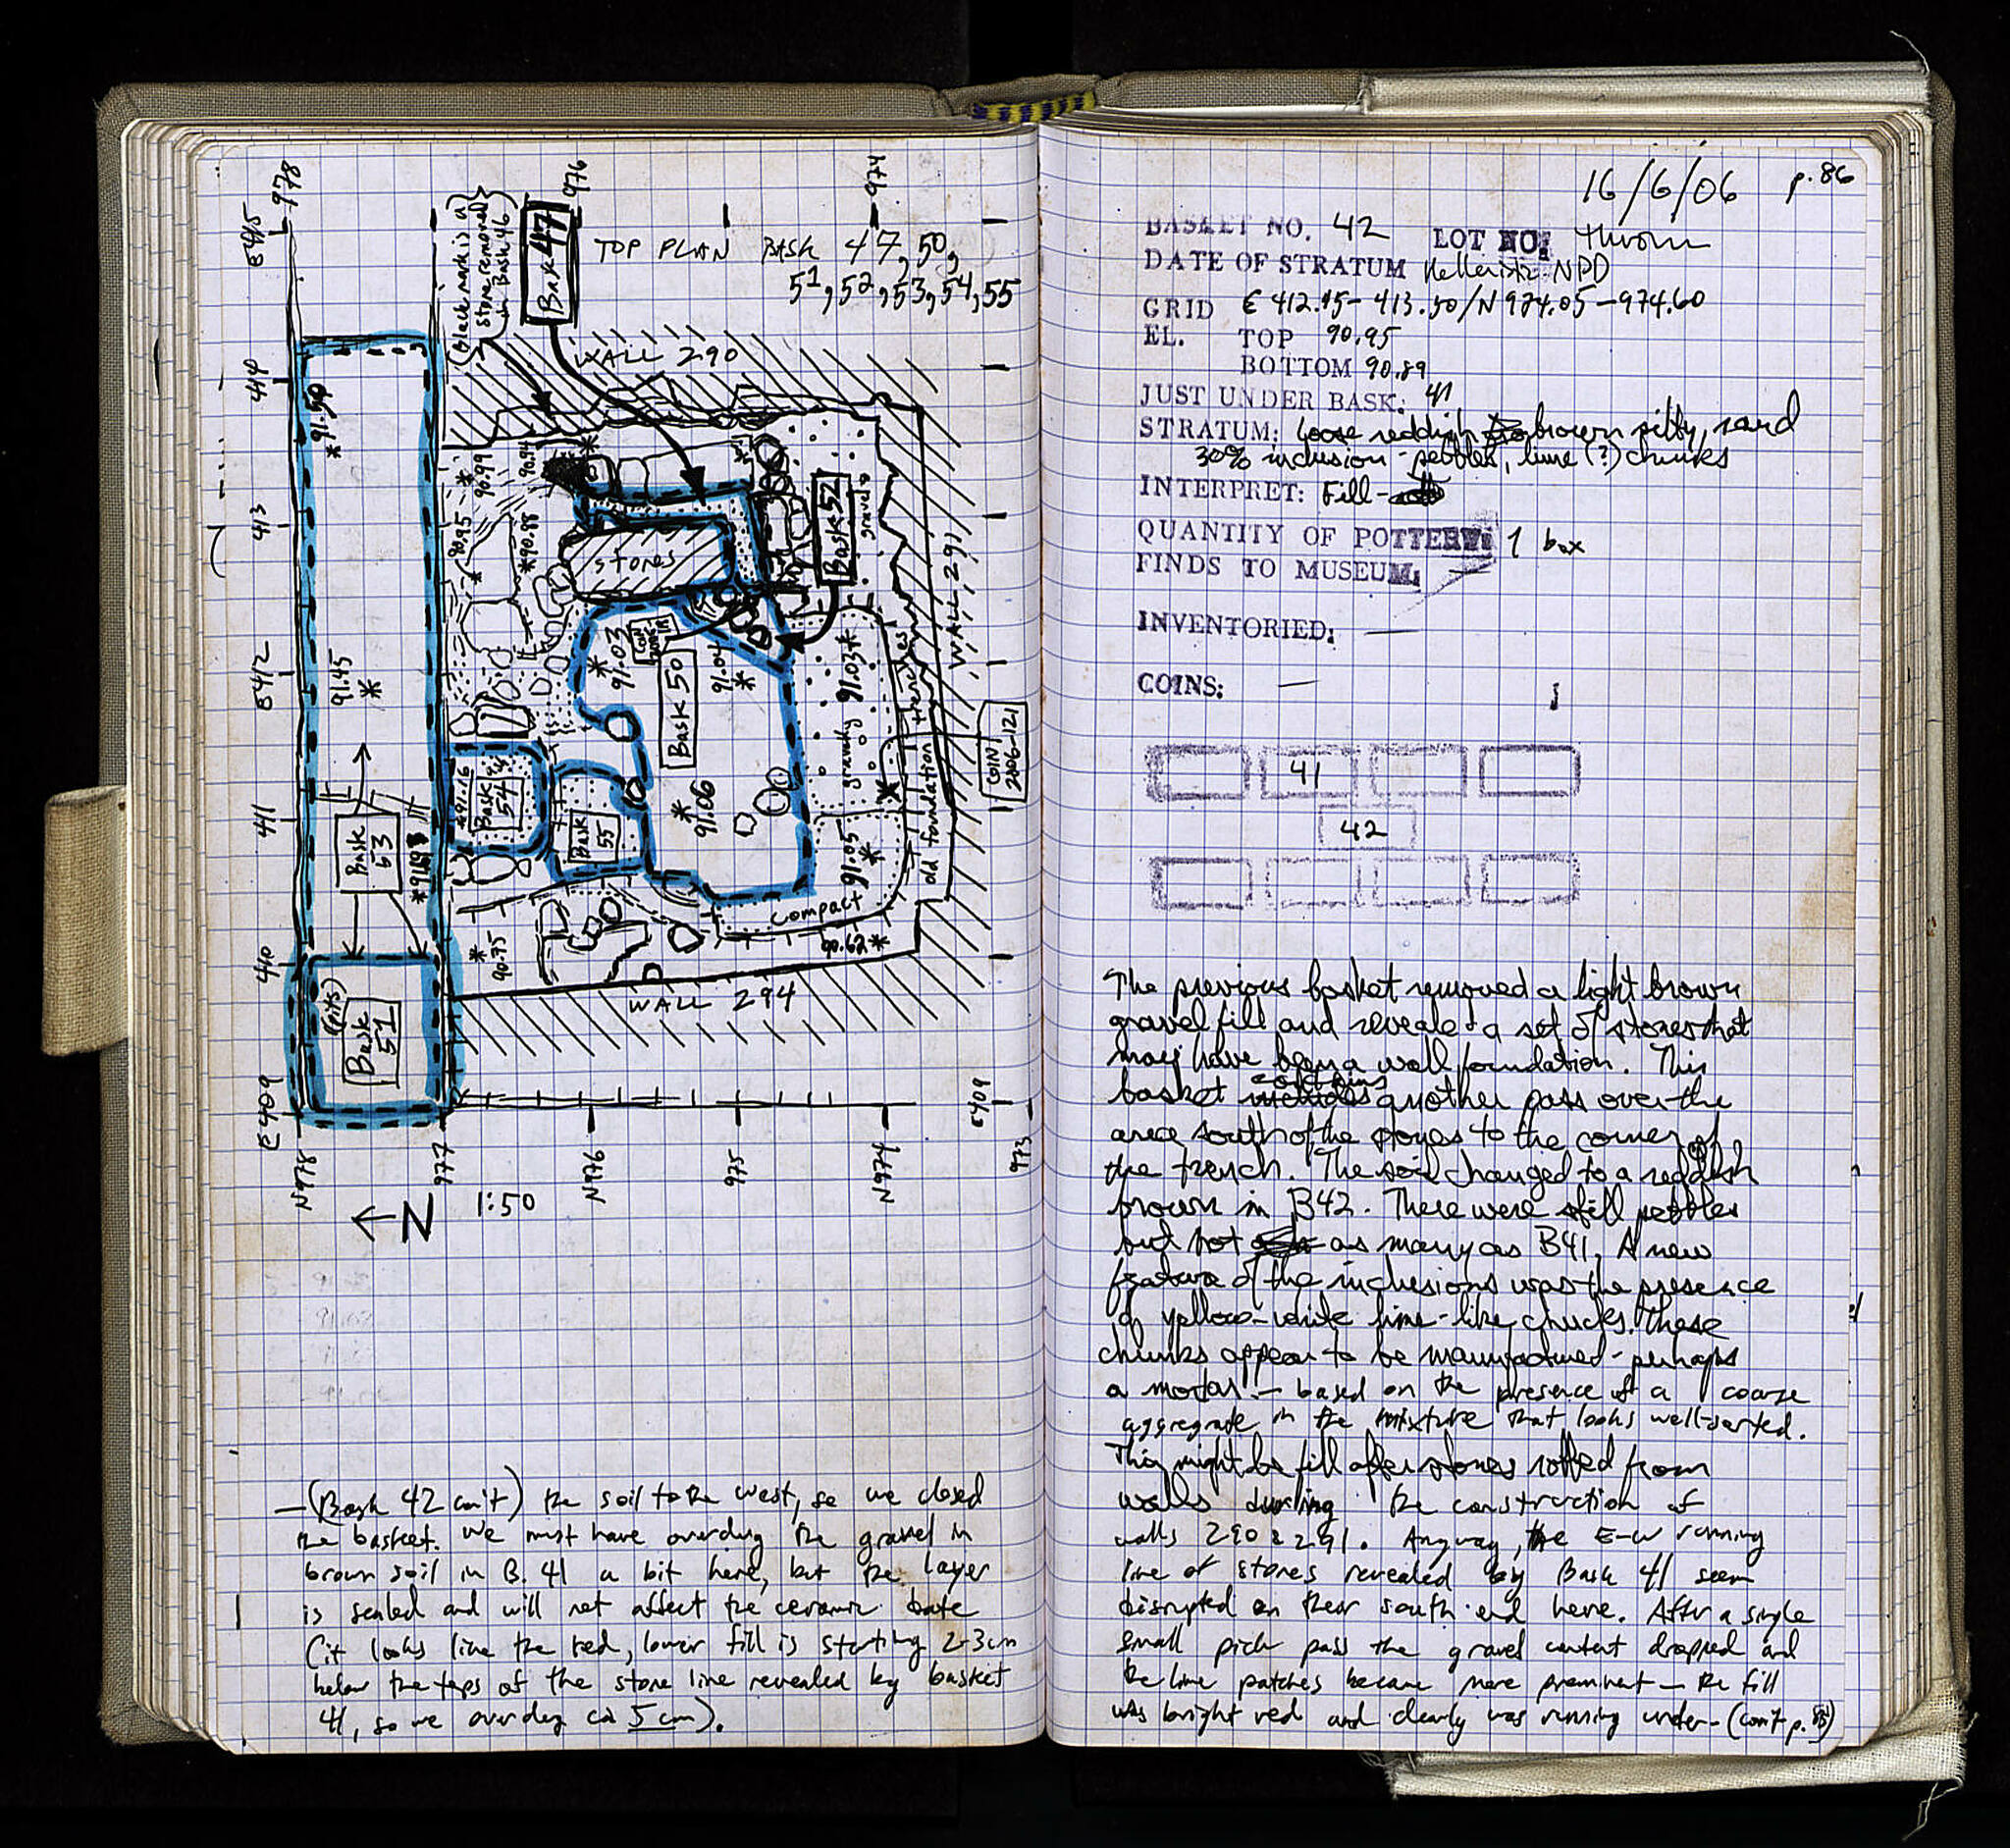 E415
978
(Black mark is a
stone removed
in Bask 46)
Bask 47
976
974
TOP PLAN BASK 47, 50,
51, 52, 53, 54, 55
WALL 290
414
*91.50
90.99
90.94
413
90.95
*90.88
stones
Bask 52
gravel
WALL 291
E412
91.45
91.03
COIN
Bask 50
91.04
91.03*
gravelly
trenches
old foundation
COIN
2006-121
411
Bask
53
91.16
Bask
54
Bask
55
91.06
91.05
compact
410
90.75
90.62*
WALL 294
(pits)
Bask
51
E409
E409
N978
977
N976
975
N974
973
N
1:50
— (Bask 42 con't) the soil to the west, so we closed
the basket. We must have overdug the gravel in
brown soil in B. 41 a bit here, but the layer
is sealed and will not affect the ceramic date
(it looks like the red, lower fill is starting 2-3cm
below the tops of the stone line revealed by basket
41, so we overdug ca 5 cm).
16/6/06 p. 86
BASKET NO. 42 LOT NO. thrown
DATE OF STRATUM Hellenistic NPD
GRID E 412.45-413.50/N 974.05-974.60
EL. TOP 90.95
BOTTOM 90.89
JUST UNDER BASK: 41
STRATUM: loose reddish brown silty sand
30% inclusion - pebbles, lime (?) chunks
INTERPRET: Fill-
QUANTITY OF POTTERY: 1 box
FINDS TO MUSEUM: —
INVENTORIED: —
COINS: —
41
42
The previous basket removed a light brown
gravel fill and revealed a set of stones that
may have been a wall foundation. This
basket contains another pass over the
area south of the stones to the corner of
the trench. The soil changed to a reddish
brown in B42. There were still pebbles
but not as many as B41. A new
feature of the inclusions was the presence
of yellow-white lime-like chucks. These
chunks appear to be manufactured - perhaps
a mortar - based on the presence of a coarse
aggregate in the mixture that looks well-sorted.
This might be fill after stones robbed from
walls during the construction of
walls 290 & 291. Anyway, the E-W running
line of stones revealed by Bask 41 seem
disrupted on their south end here. After a single
small pick pass the gravel content dropped and
the lime patches became more prominent — the fill
was bright red and clearly was running under - (con't p. 85)